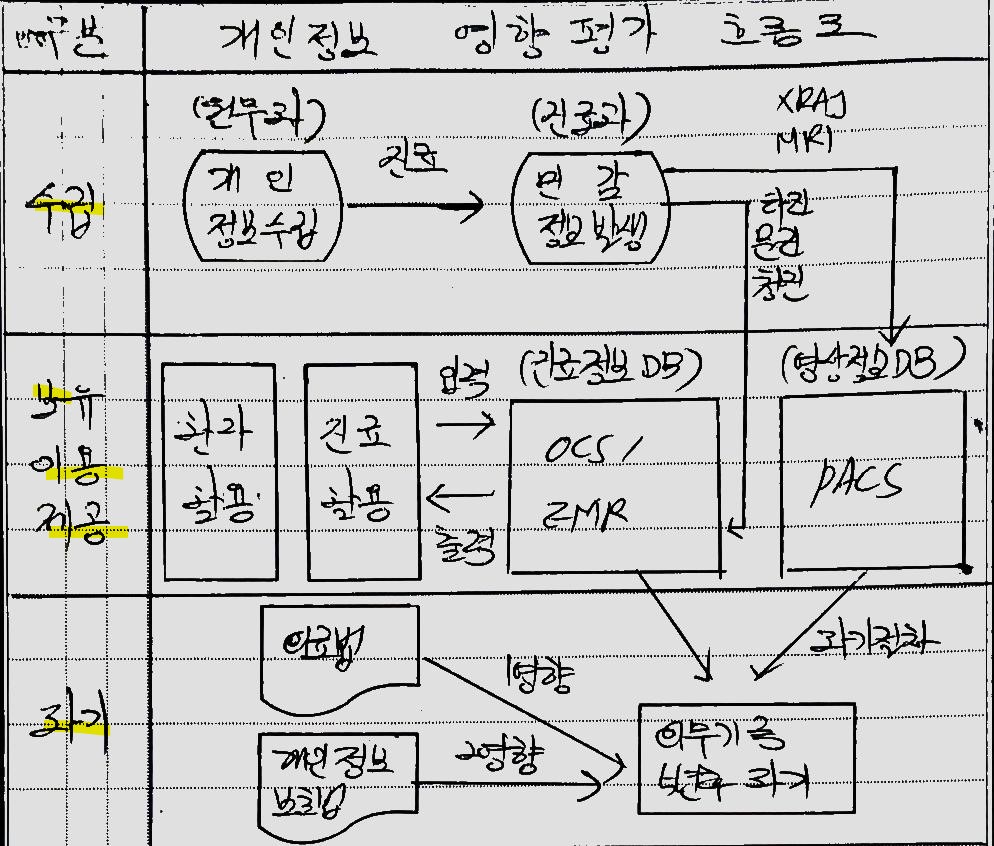 구분 개인정보 영향평가 흐름도
수집
(원무과)
개인
정보수집
진료
(진료과)
민감
정보발생
XRAY
MRI
타진
문진
청진
보유
이용
제공
환자
활용
진료
활용
입력
출력
(진료정보DB)
OCS/
EMR
(영상정보DB)
PACS
파기
의료법
1영향
개인정보
보호법
2영향
파기절차
의무기록
파기